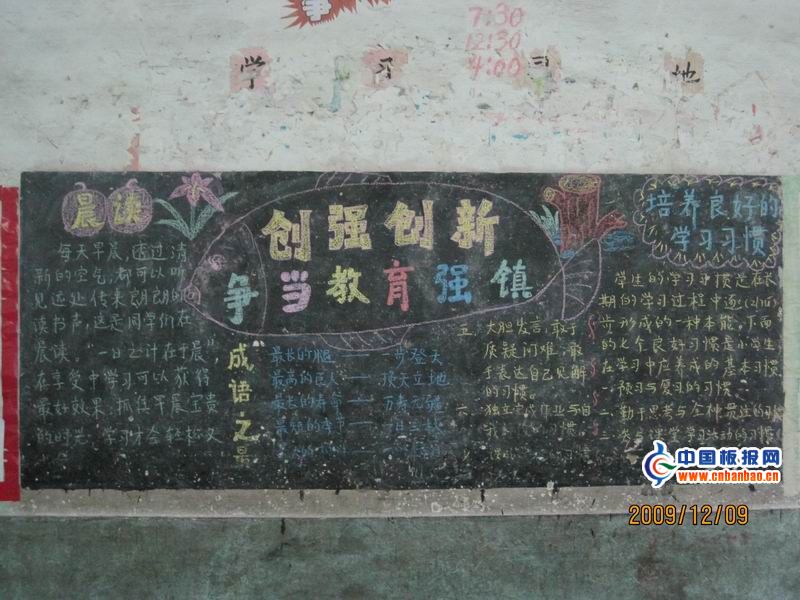 争
7:30
12:30
4:00
学 习 习 地
晨读
每天早晨,透过清
新的空气,都可以听
见远处传来朗朗的
读书声,这是同学们在
晨读。"一日之计在于晨",
在享受中学习可以获得
最好效果。抓住早晨宝贵
的时光,学习才会轻松又
创强创新
争当教育强镇
成语之最
最长的腿——一步登天
最高的巨人——顶天立地
最长的寿命——万寿无疆
五、大胆发言,敢于
质疑问难,敢
于表达自己见解
的习惯。
六、独立完成作业与自
培养良好的
学习习惯
学生的学习习惯是在长
期的学习过程中逐
步形成的一种本能。下面
的七个良好习惯是小学生
在学习中应养成的基本习惯
一、预习与复习的习惯。
二、勤于思考与
中国板报网
www.cnbanbao.cn
2009/12/09